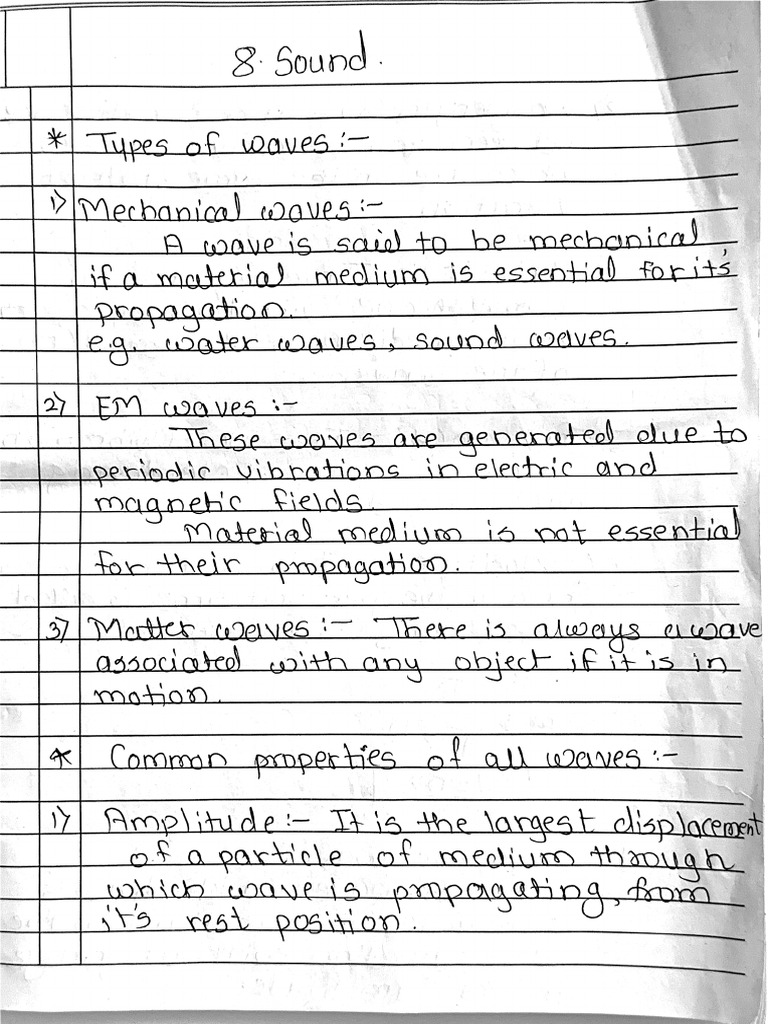 8. Sound.
* Types of waves :-
1) Mechanical waves :-
A wave is said to be mechanical
if a material medium is essential for it's
propagation.
e.g. water waves, sound waves.
2) EM waves :-
These waves are generated due to
periodic vibrations in electric and
magnetic fields.
Material medium is not essential
for their propagation.
3) Matter waves :- There is always a wave
associated with any object if it is in
motion.
* Common properties of all waves :-
1) Amplitude :- It is the largest displacement
of a particle of medium through
which wave is propagating, from
it's rest position.